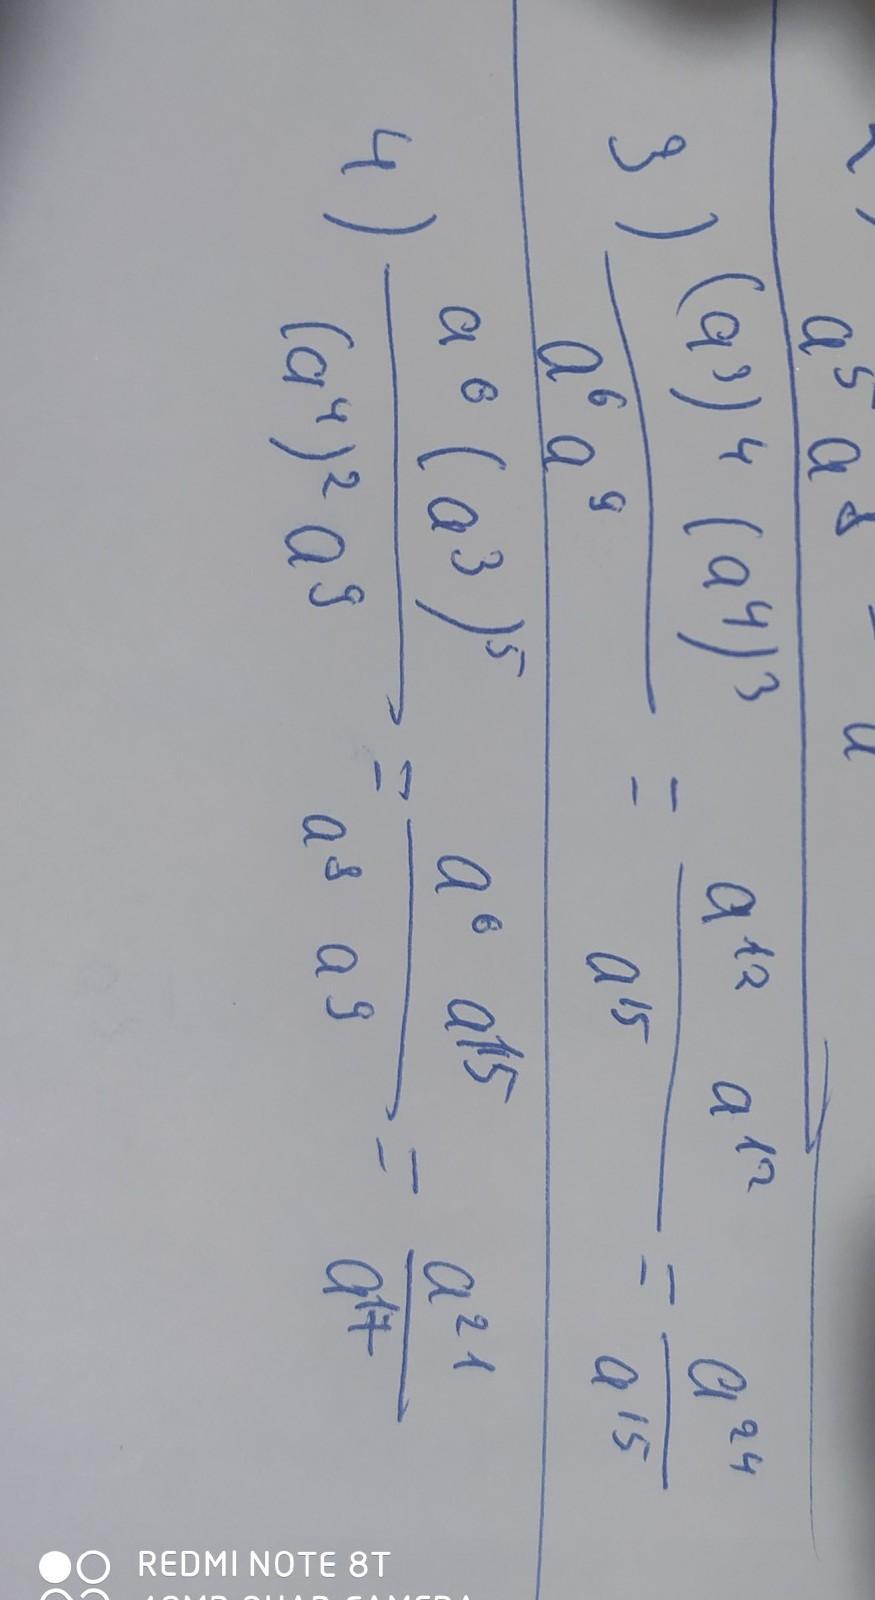 a⁵ a⁸
3) (a³)⁴ (a⁴)³ / a⁶ a⁹ = a¹² a¹² / a¹⁵ = a²⁴ / a¹⁵
4) a⁶ (a³)⁵ / (a⁴)² a⁹ = a⁶ a¹⁵ / a⁸ a⁹ = a²¹ / a¹⁷
REDMI NOTE 8T
48MP QUAD CAMERA